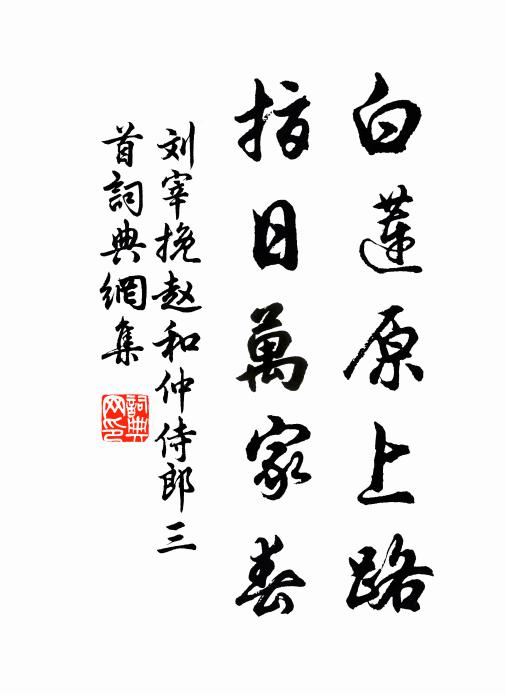 白蓮原上路
指日萬家春
刘宰挽赵和仲侍郎三
首詞典網集
詞典
网印